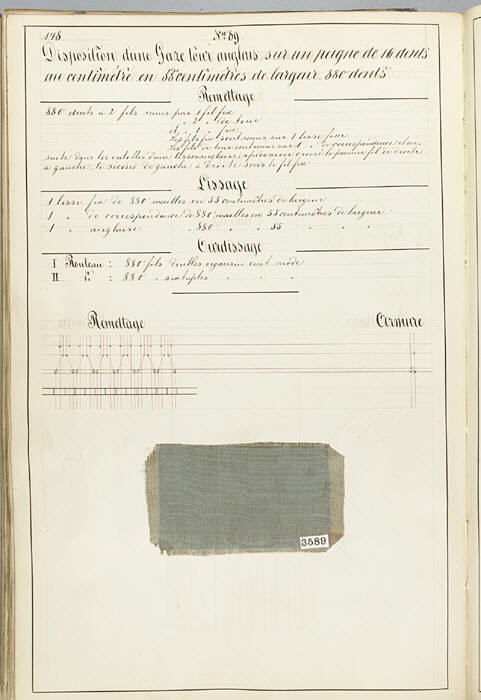 148 Nº 89
Disposition d'une Gaze tour anglais sur un peigne de 16 dents
au centimètre en 55 centimètres de largeur. 880 dents
Remettage
880 dents à 2 fils remis par 1 fil fix
" 2 " de tour
et 1 " fix
Les fils fix sont remis sur 1 lisse fixe
Les fils de tour sont remis sur 1 " de correspondance et en
suite dans les culottes d'une lisse anglaise, après avoir croisé le premier fil de droite
à gauche, le second de gauche à droite sous le fil fix
Lissage
1 lisse fix de 880 mailles en 55 centimètres de largeur
1 " de correspondance de 880 mailles en 55 centimètres de largeur
1 " anglaise " 880 " " 55 " " "
Ourdissage
I Rouleau : 880 fils doubles organsin cuit mode
II dº : 880 " sixtuples " " "
Remettage
Armure
3589